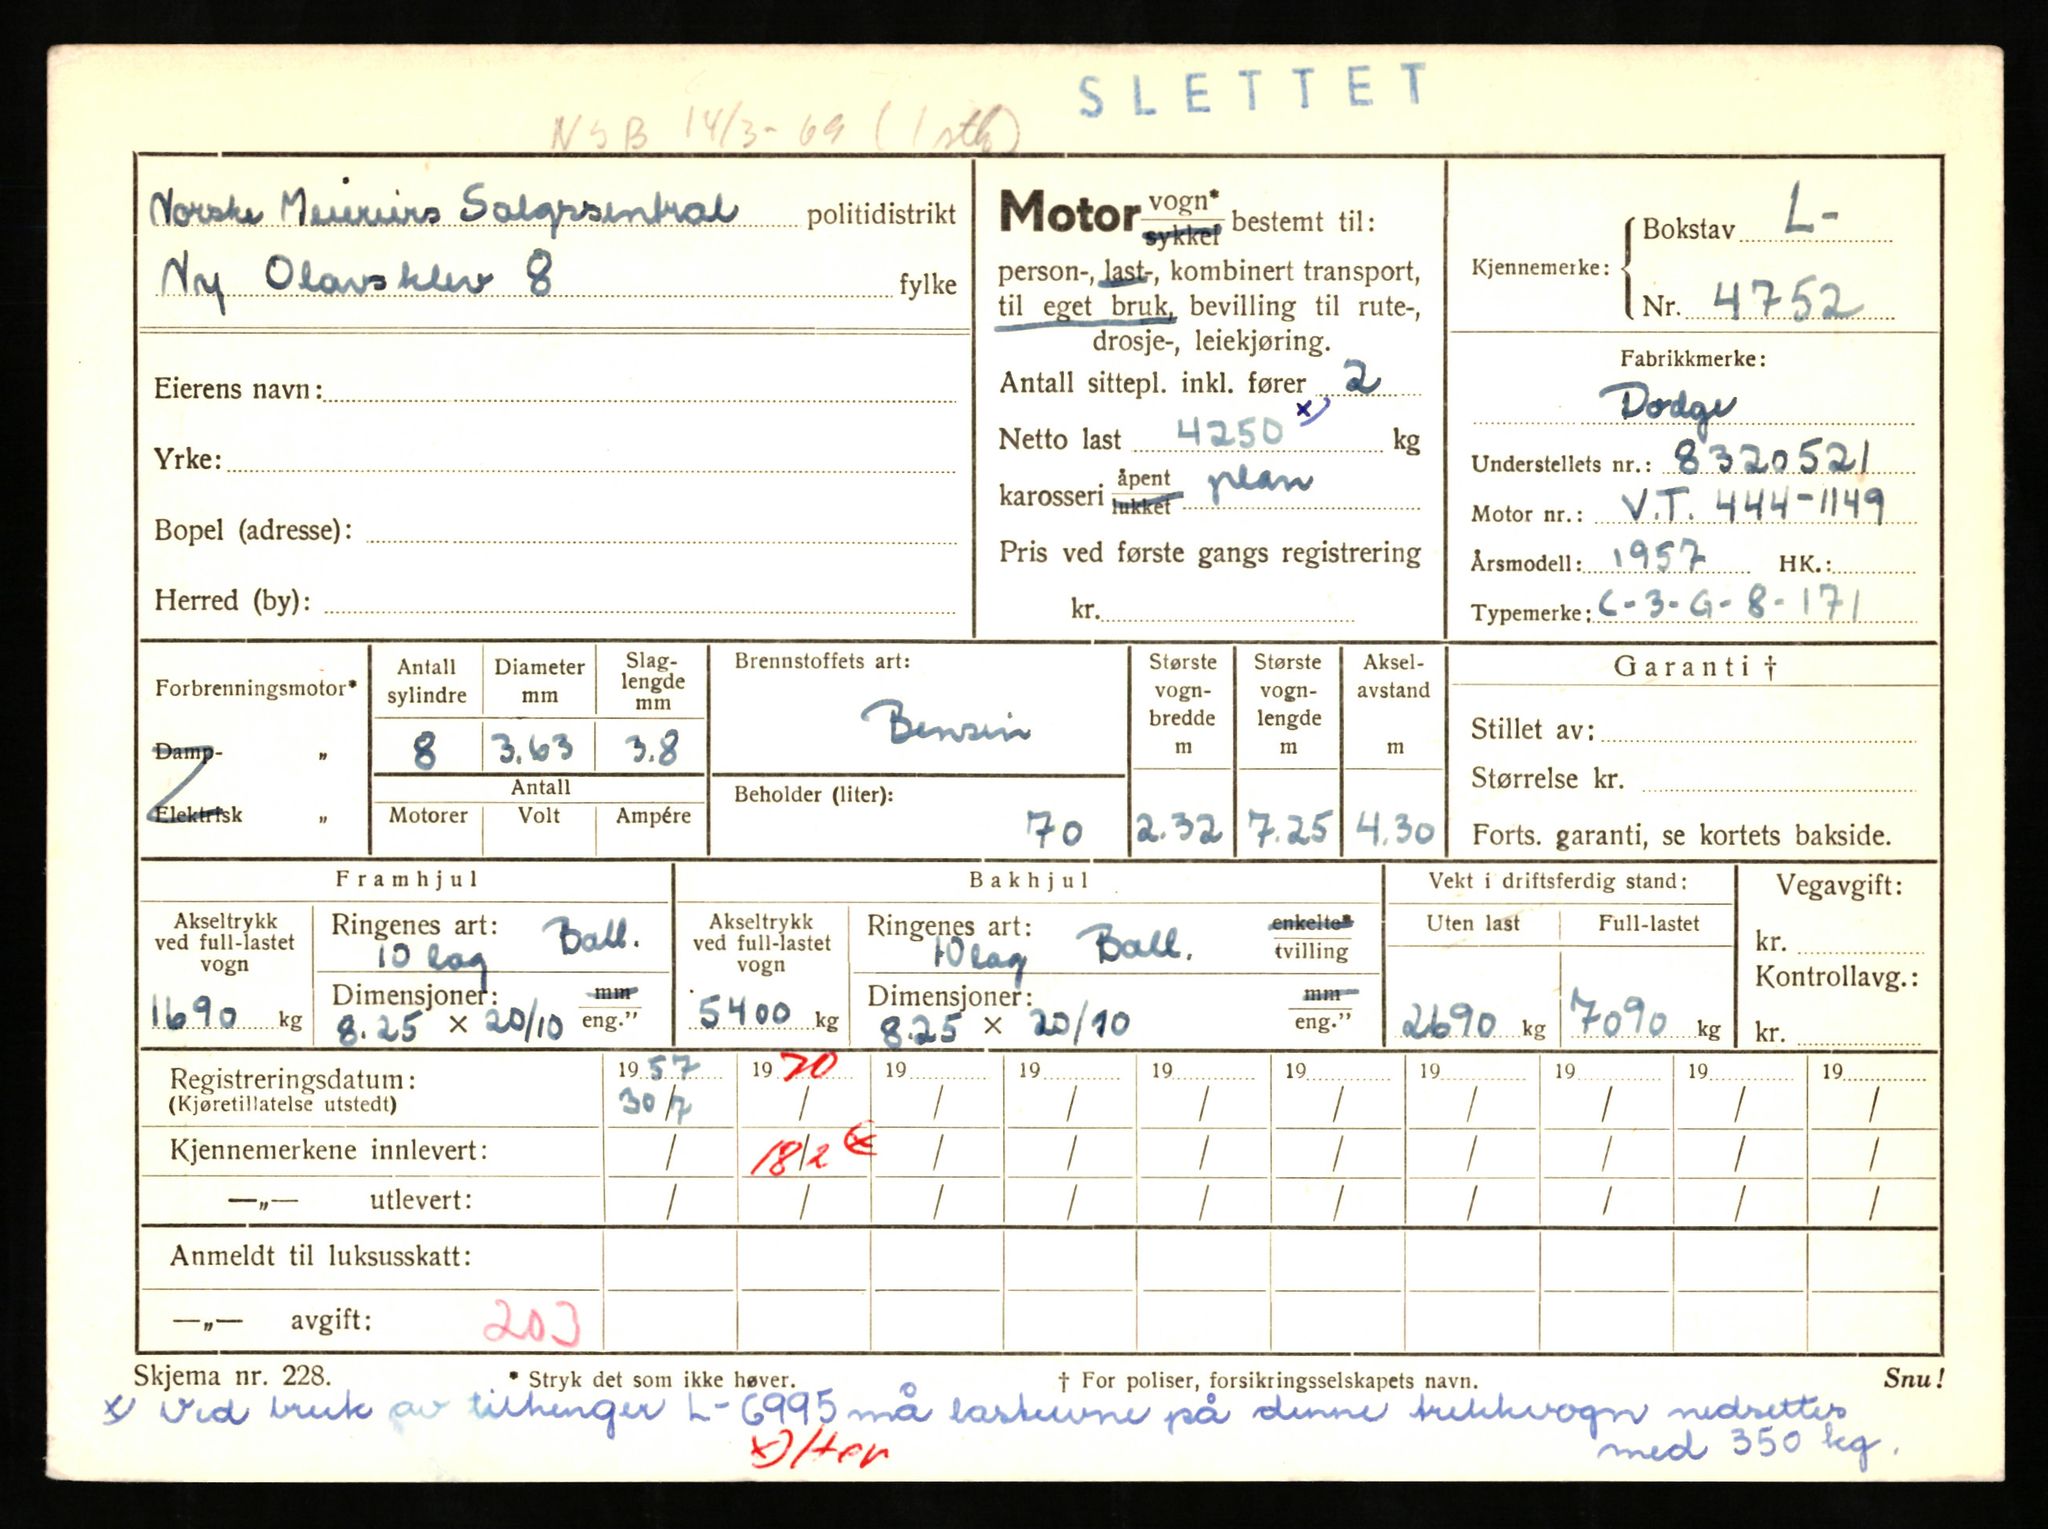 SLETTET
NSB 14/3-69 (1 stk)
Norske Meieriers Salgssentral politidistrikt
Ny Olavsklev 8 fylke
Eierens navn:
Yrke:
Bopel (adresse):
Herred (by):
Motor vogn* sykkel bestemt til:
person-, last-, kombinert transport,
til eget bruk, bevilling til rute-,
drosje-, leiekjøring.
Antall sittepl. inkl. fører 2
Netto last 4250 x) kg
karosseri åpent lukket plan
Pris ved første gangs registrering
kr.
Kjennemerke: Bokstav L-
Nr. 4752
Fabrikkmerke:
Dodge
Understellets nr.: 8320521
Motor nr.: V.T. 444-1149
Årsmodell: 1957 HK.:
Typemerke: C-3-G-8-171
Forbrenningsmotor*
Damp- „
Elektrisk „
Antall sylindre 8
Diameter mm 3.63
Slag-lengde mm 3.8
Antall
Motorer Volt Ampére
Brennstoffets art:
Bensin
Beholder (liter):
70
Største vogn-bredde m 2.32
Største vogn-lengde m 7.25
Aksel-avstand m 4.30
Garanti †
Stillet av:
Størrelse kr.
Forts. garanti, se kortets bakside.
Framhjul
Akseltrykk ved full-lastet vogn
1690 kg
Ringenes art: Ball.
10 lag
Dimensjoner: mm
8.25 × 20/10 eng.”
Bakhjul
Akseltrykk ved full-lastet vogn
5400 kg
Ringenes art: Ball. enkelte* tvilling
10 lag
Dimensjoner: mm
8.25 × 20/10 eng.”
Vekt i driftsferdig stand:
Uten last Full-lastet
2690 kg 7090 kg
Vegavgift:
kr.
Kontrollavg.:
kr.
Registreringsdatum: 1957 1970 19 19 19 19 19 19 19 19
(Kjøretillatelse utstedt) 30/7 / / / / / / / / /
Kjennemerkene innlevert: / 18/2 x) / / / / / / / /
—„— utlevert: / / / / / / / / / /
Anmeldt til luksusskatt:
—„— avgift: 203
Skjema nr. 228. * Stryk det som ikke høver. † For poliser, forsikringsselskapets navn. Snu!
x) Ved bruk av tilhenger L-6995 må lasteevne på denne trekkvogn nedsettes
med 350 kg.